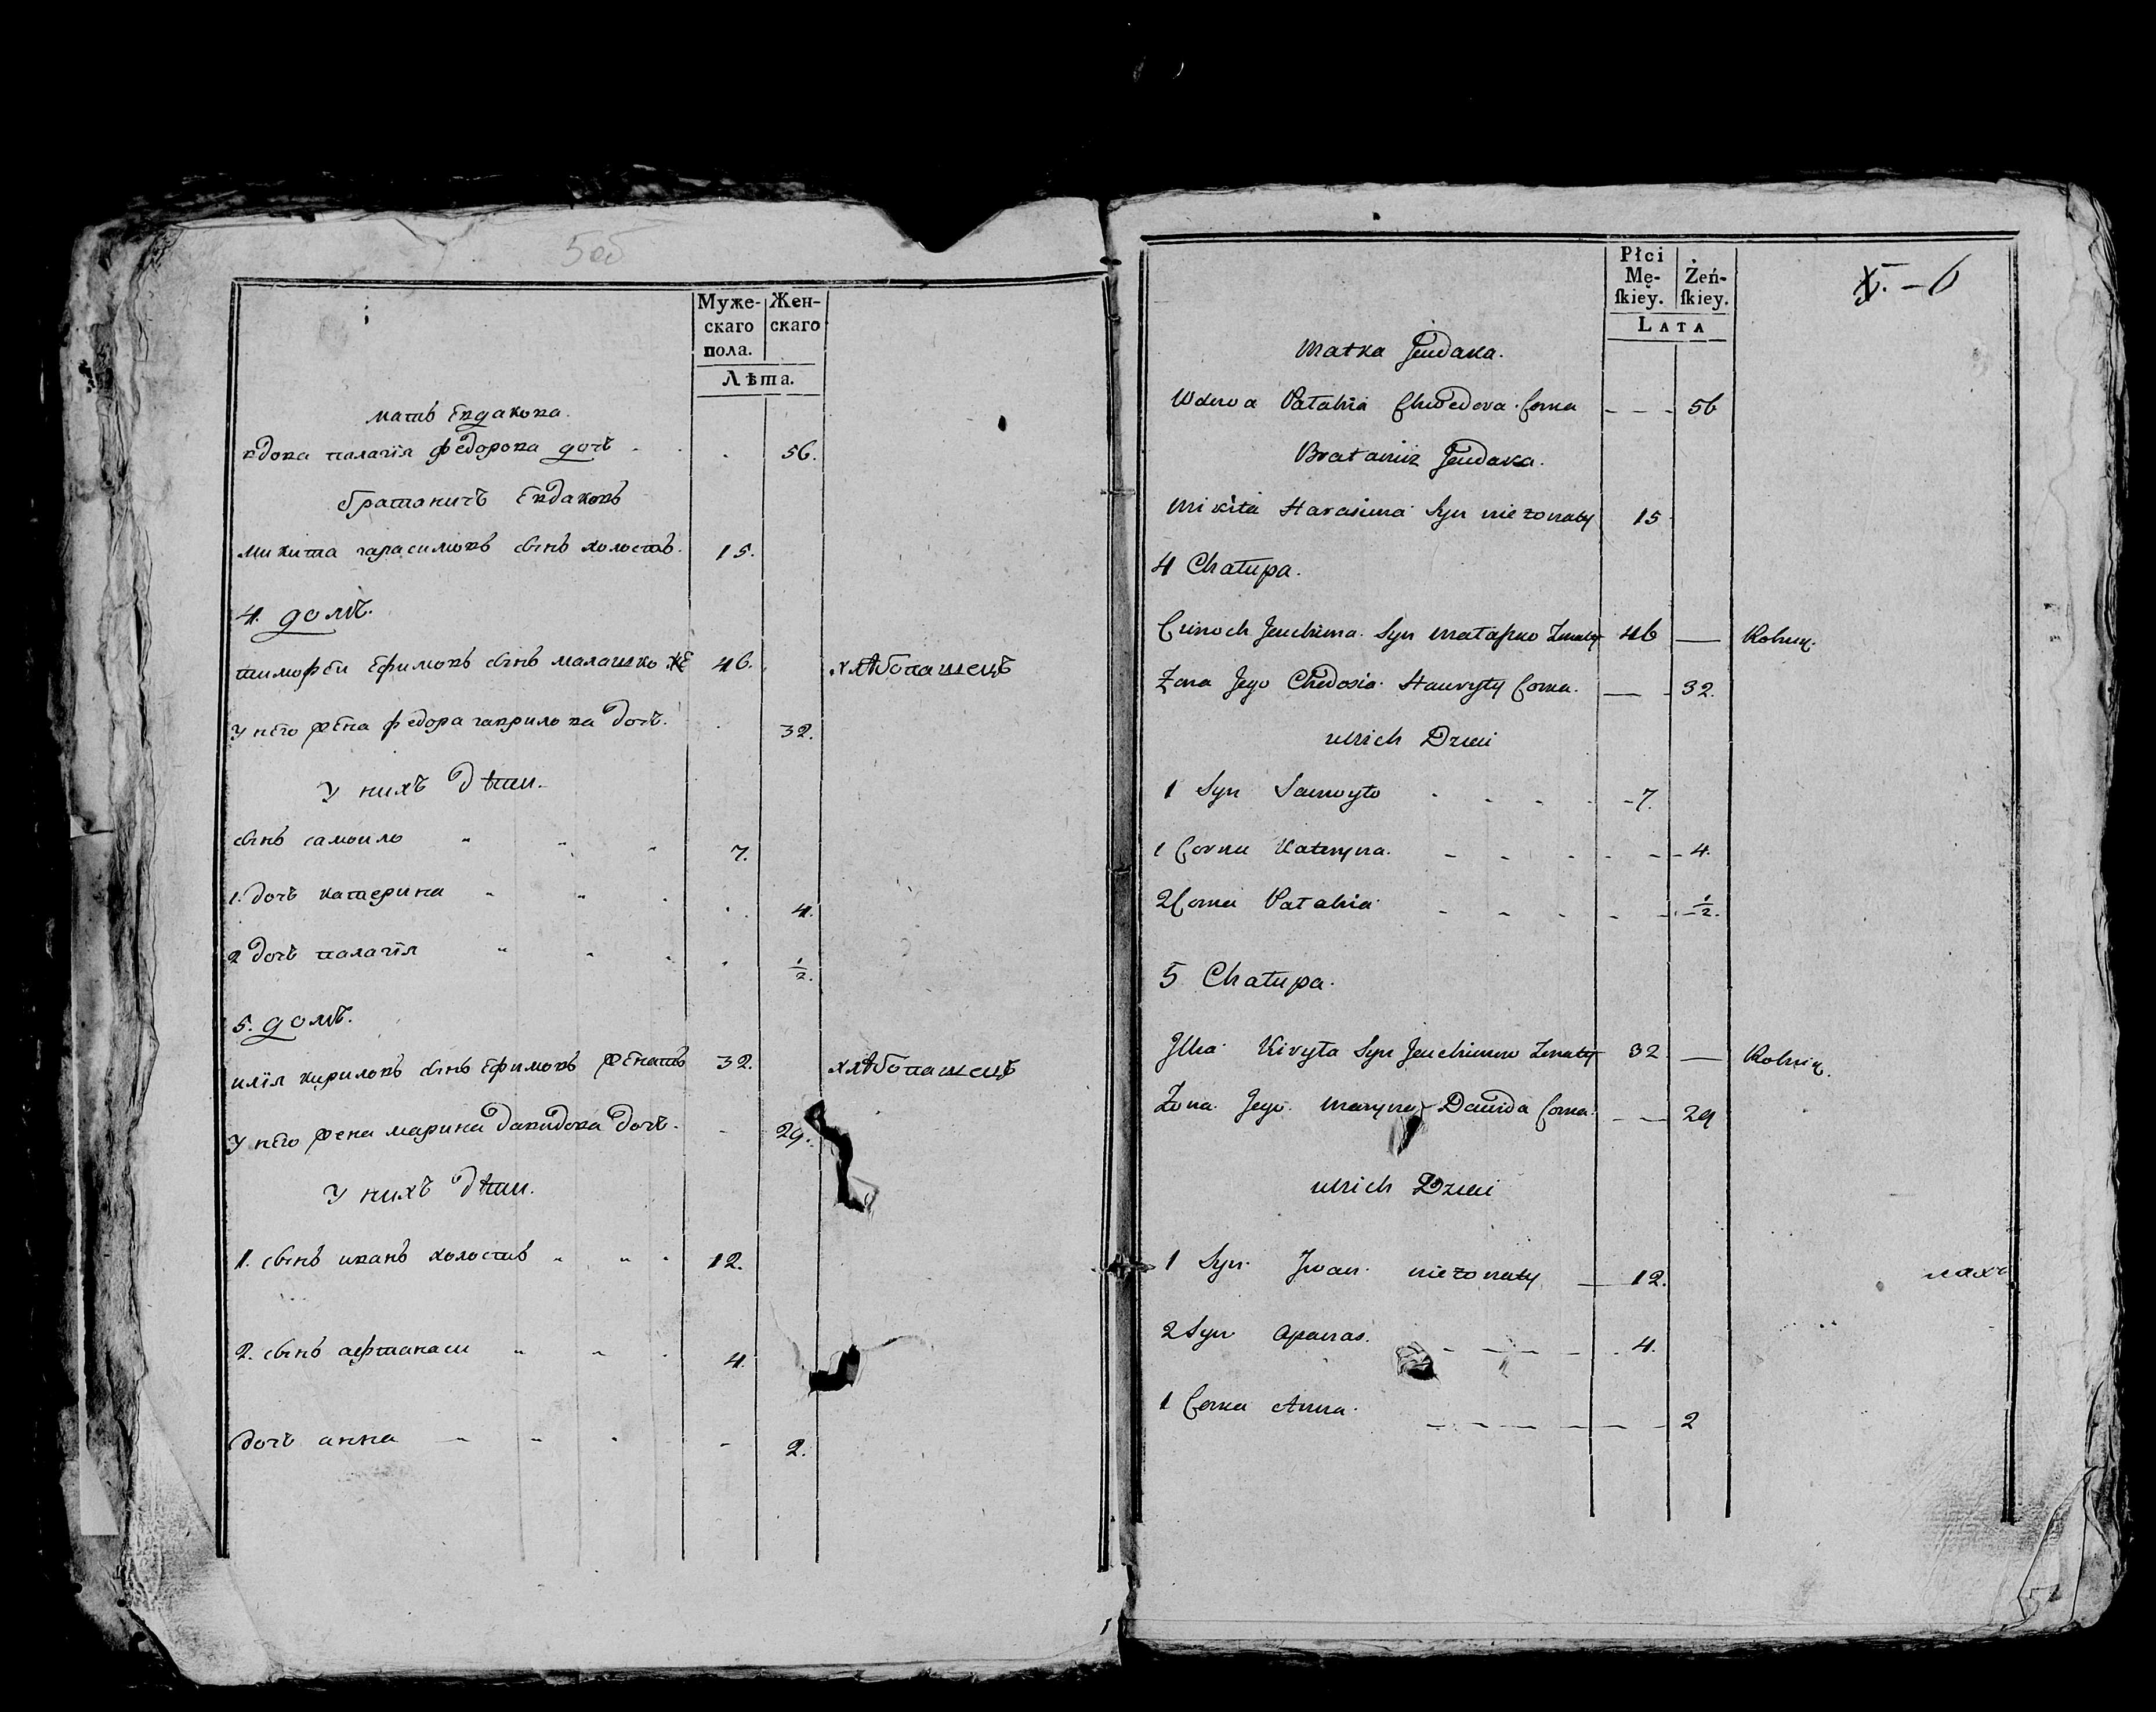 5 об
Муже-
скаго
пола.
Жен-
скаго
Лѣта.
мать Евдакова.
вдова палагїя федорова дочъ 56.
братаничъ Евдаковъ
микита гарасимовъ сынъ холостъ. 15.
4. домъ.
тимофеи Ефимовъ сынъ малашко же 46. хлѣбопашецъ
у него жена федора гаврилова дочъ. 32.
У нихъ дѣти.
сынъ самоило 7.
1. дочъ катерина 4.
2 дочъ палагїя 1/2.
5. домъ.
илїя кириловъ сынъ Ефимовъ женатъ 32. хлѣбопашецъ
у него жена марина давидова дочъ. 29.
У нихъ дѣти.
1. сынъ иванъ холостъ 12.
2. сынъ афтанаси 4.
дочъ анна 2.
Płci
Mę-
ſkiey.
Żeń-
ſkiey.
Lata
X. - 6
Matka Jeudaka.
Wdowa Patahia Chwedora Corka - - - 56
Bratanicz Jeudaka.
Mikita Harasima Syn nie zonaty 15
4 Chałupa.
Jeuchima Syn Zonaty 46 — Rolnik.
Zona Jego Chedosia Hauryły Corka. — 32.
u nich Dzieci
1 Syn Samoyło 7.
1 Corka Kateryna. 4.
2 Corka Patahia 1/2.
5 Chałupa.
Illia Kiryła Syn Zonaty 32 — Rolnik.
Zona Jego Maryna Dawida Corka. 29
u nich Dzieci
1 Syn Jwan nie zonaty 12.
2 Syn Apanas. 4.
1 Corka Anna. 2